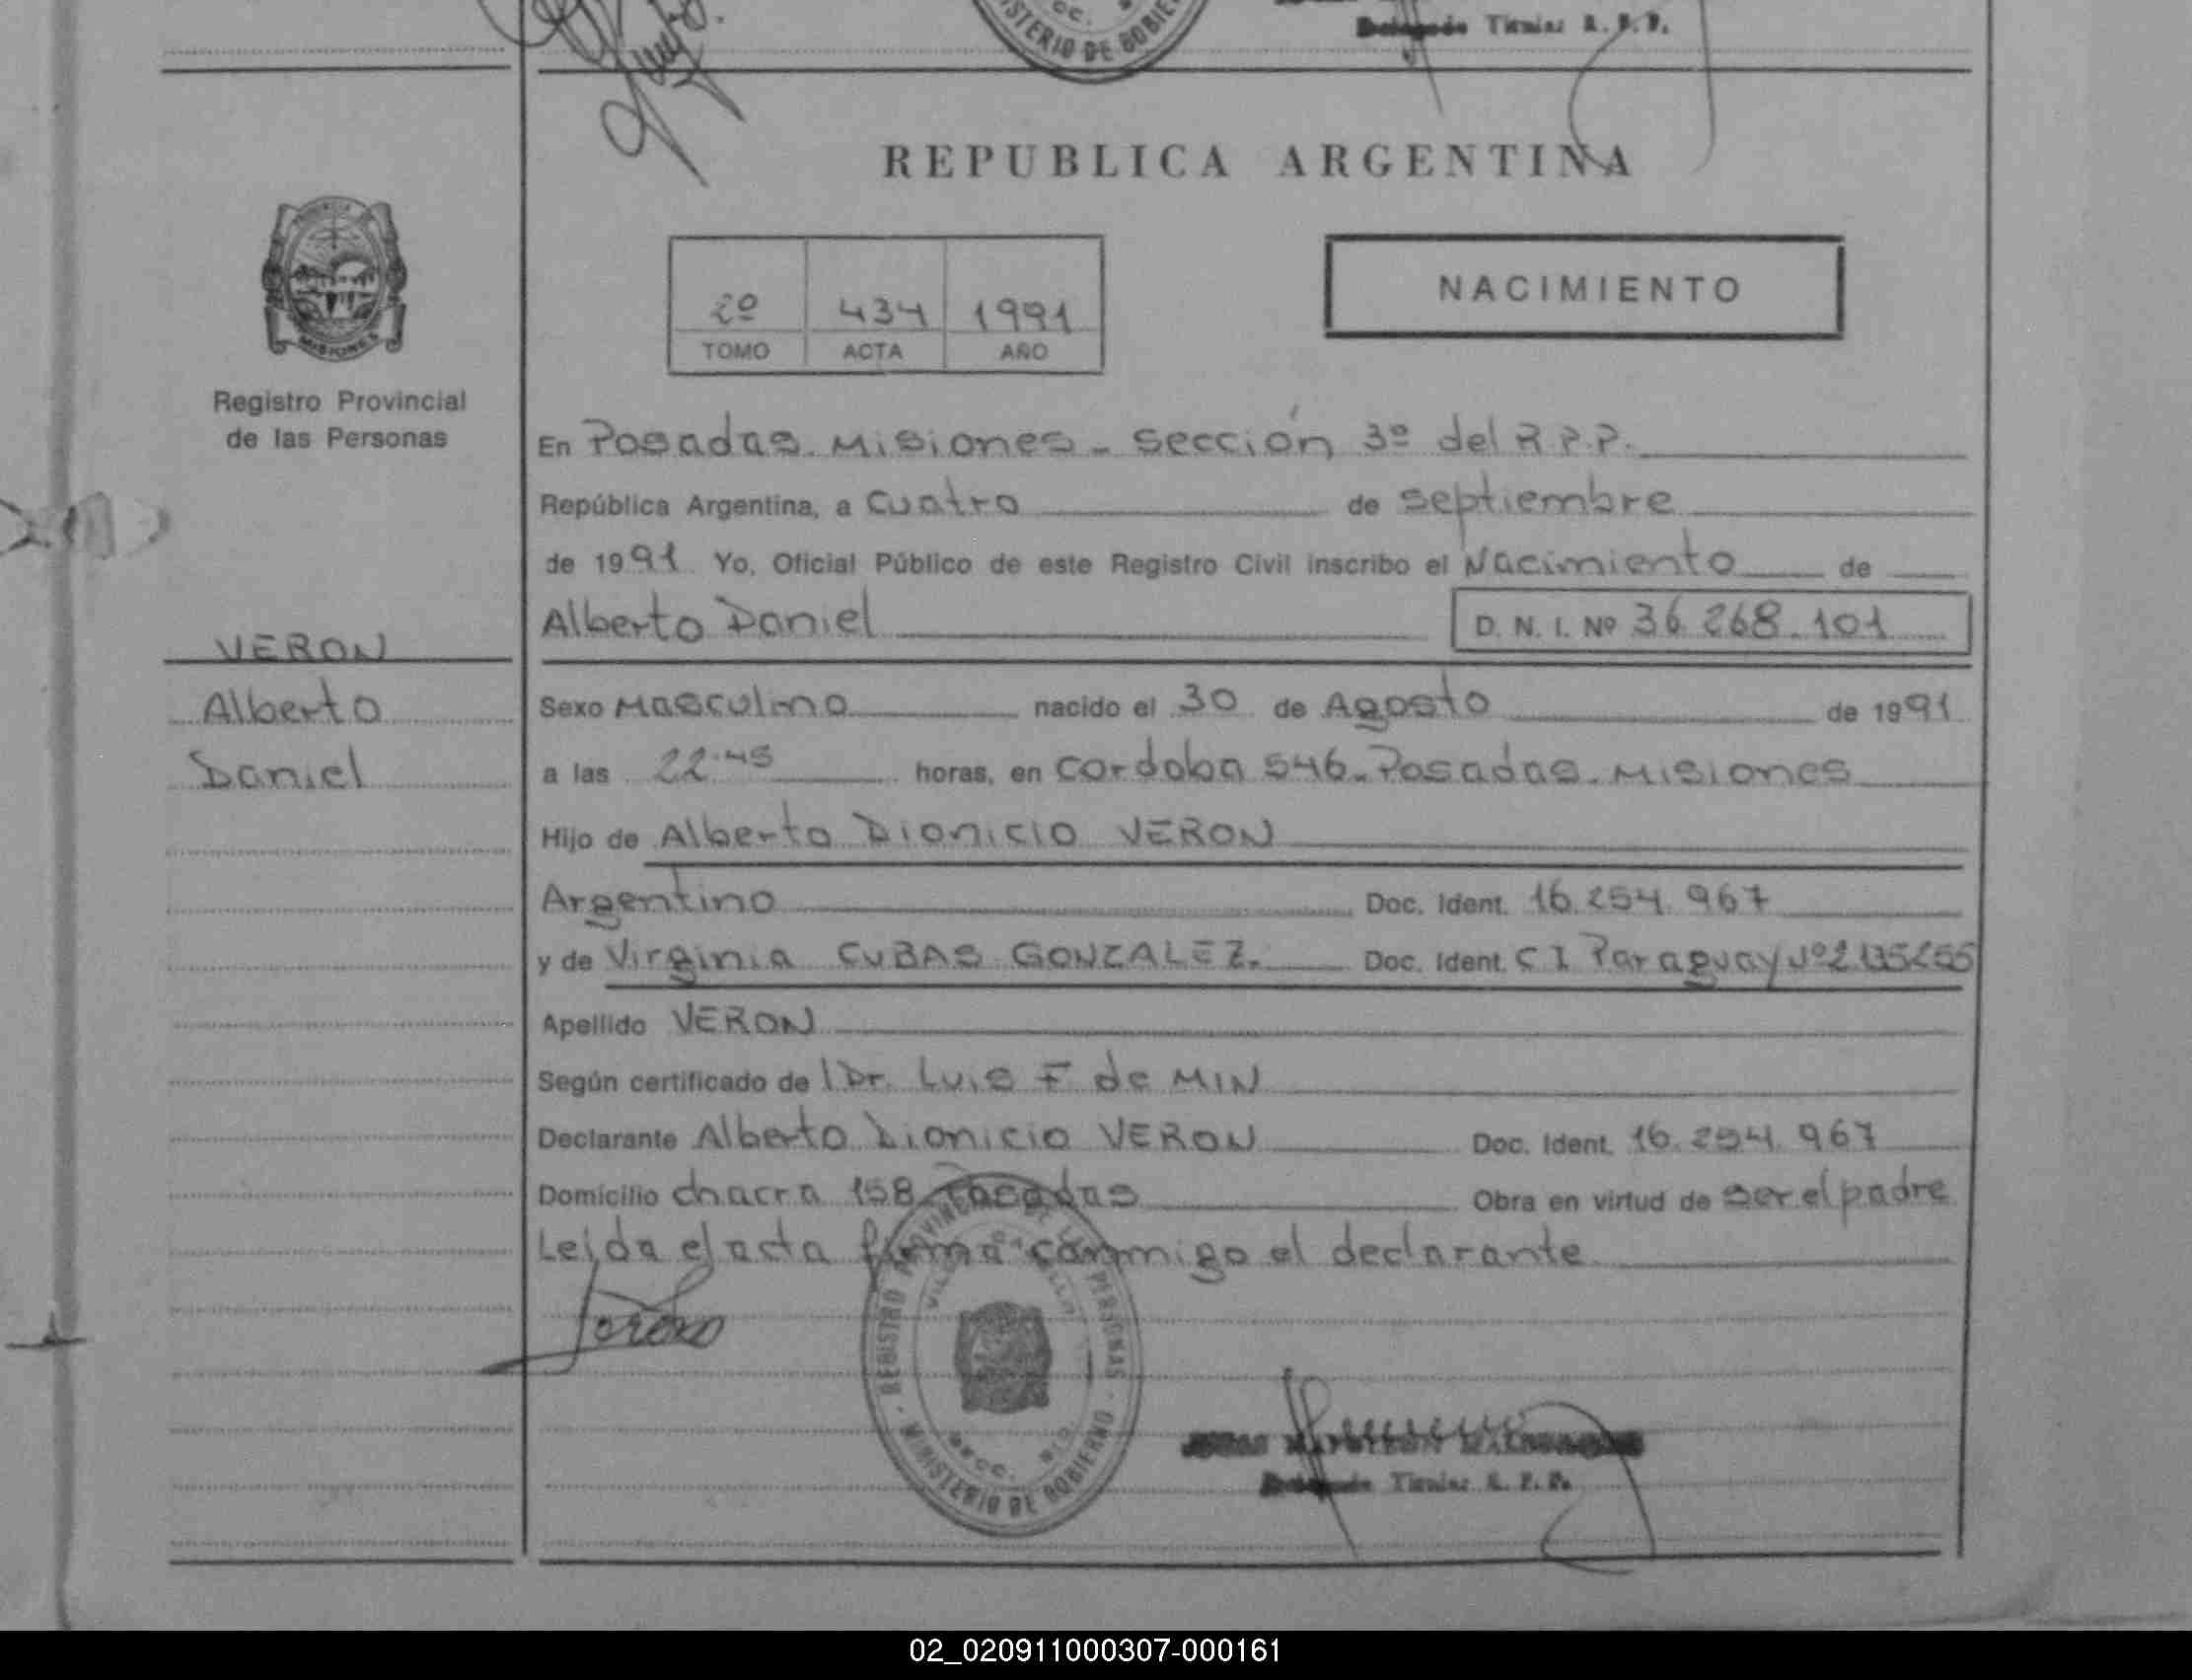 MINISTERIO DE GOBIERNO
Titular R. P. P.
REPUBLICA ARGENTINA
MISIONES
2º 434 1991
TOMO ACTA AÑO
NACIMIENTO
Registro Provincial
de las Personas
En Posadas. Misiones - sección 3º del R.P.P.
República Argentina, a cuatro de septiembre
de 1991 Yo, Oficial Público de este Registro Civil inscribo el Nacimiento de
Alberto Daniel D. N. I. Nº 36.268.101
VERON
Alberto
Daniel
Sexo Masculino nacido el 30 de Agosto de 1991
a las 22.45 horas, en cordoba 546. Posadas. Misiones
Hijo de Alberto Dionicio VERON
Argentino Doc. Ident. 16.254.967
y de Virginia CUBAS GONZALEZ. Doc. Ident. C I Paraguay Nº
Apellido VERON
Según certificado de l Dr. Luis F de MIN
Declarante Alberto Dionicio VERON Doc. Ident. 16.254.967
Domicilio chacra 158 Posadas Obra en virtud de ser el padre
Leida el acta firma conmigo el declarante
REGISTRO PROVINCIAL DE LAS PERSONAS
SECC.
MINISTERIO DE GOBIERNO
Titular R. P. P.
02_020911000307-000161